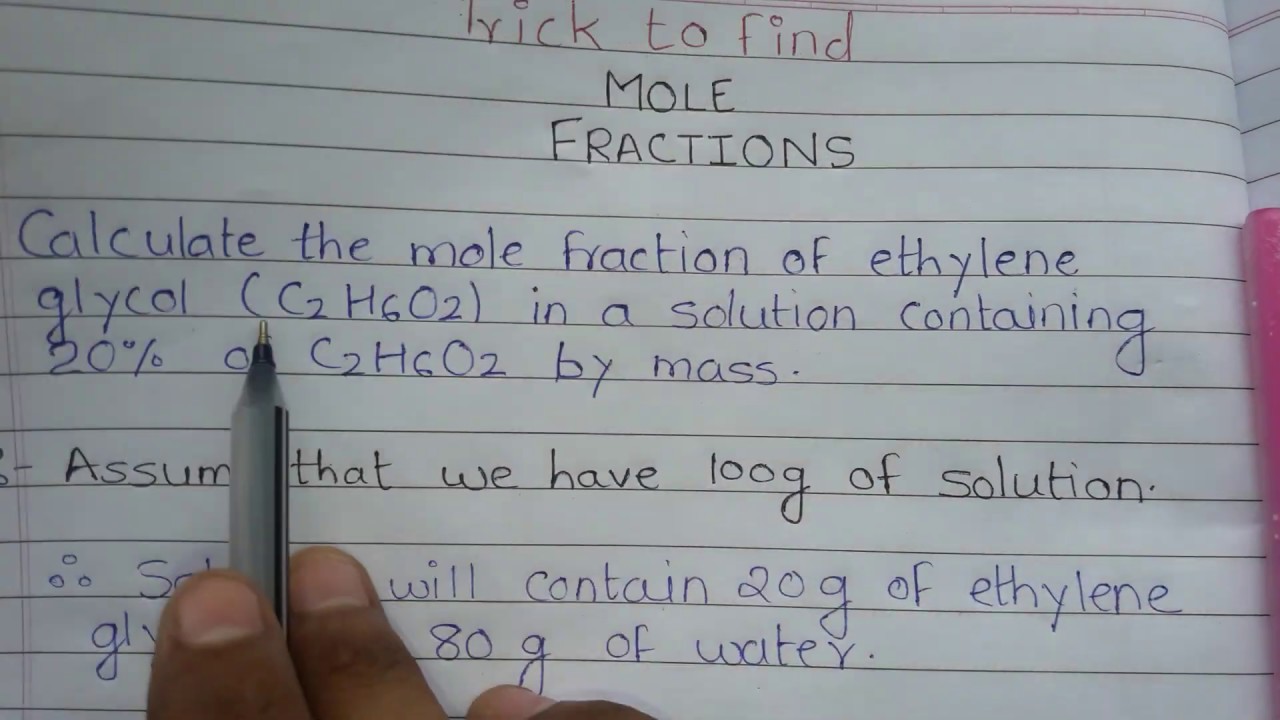 Trick to find
MOLE
FRACTIONS
Calculate the mole fraction of ethylene
glycol (C2H6O2) in a solution containing
20% C2H6O2 by mass.
:- Assum that we have 100g of solution.
∴ will contain 20g of ethylene
80 g of water.